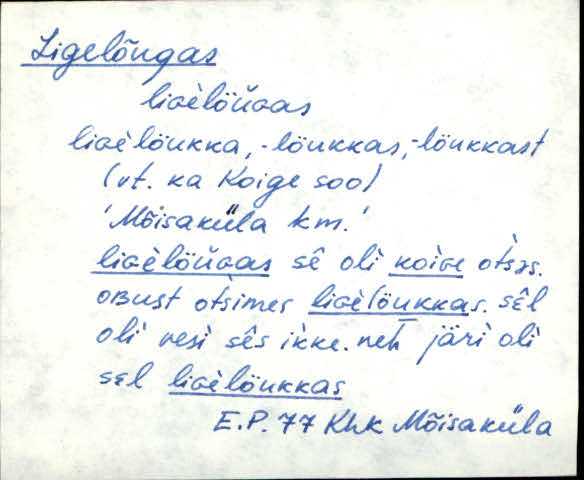 Ligelõugas
liɢèlöùɢas
liɢèlöukka, -löukkas, -löukkast
(vt. ka Koige soo)
'Mõisaküla km.'
liɢèlöùɢas sê oli koiɢe otsɜs.
oʙust otsimes liɢèlöukkas. sɛl
oli vesi sês ikke. neh järi oli
sɛl liɢèlöukkas
E.P. 77 Khk Mõisaküla